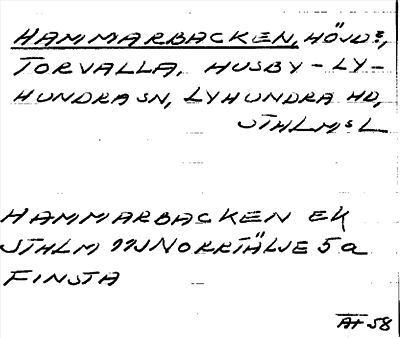 HAMMARBACKEN, HÖJD?,
TORVALLA, HUSBY-LY-
HUNDRA SN, LYHUNDRA HD,
STHLMS L
HAMMARBACKEN EK
STHLM 11J NORRTÄLJE 5a
FINSTA
ÄT 58